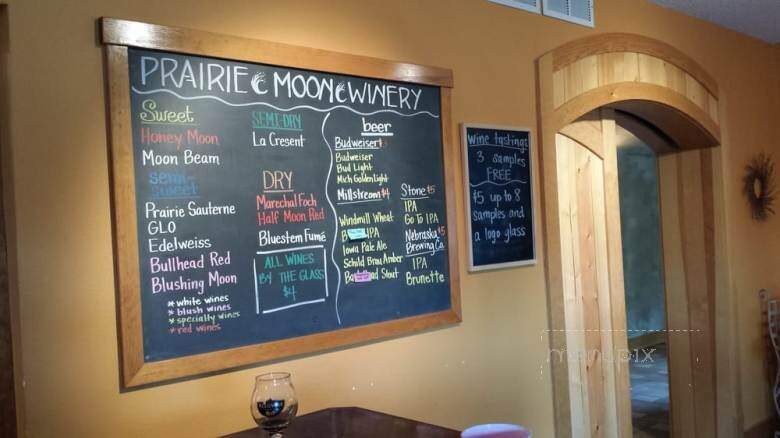 PRAIRIE MOON WINERY
Sweet
Honey Moon
Moon Beam
semi-sweet
Prairie Sauterne
GLO
Edelweiss
Bullhead Red
Blushing Moon
*white wines
*blush wines
*specialty wines
*red wines
SEMI-DRY
La Cresent
DRY
Marechal Foch
Half Moon Red
Bluestem Fumé
ALL WINES
BY THE GLASS
$4
beer
Budweiser
Budweiser
Bud Light
Mich Golden Light
Millstream $4
Windmill Wheat
IPA
Iowa Pale Ale
Schild Brau Amber
Stout
Stone $5
IPA
Go To IPA
Nebraska $5
Brewing Co.
IPA
Brunette
wine tastings
3 samples
FREE
$5 up to 8
samples and
a logo glass
menupix